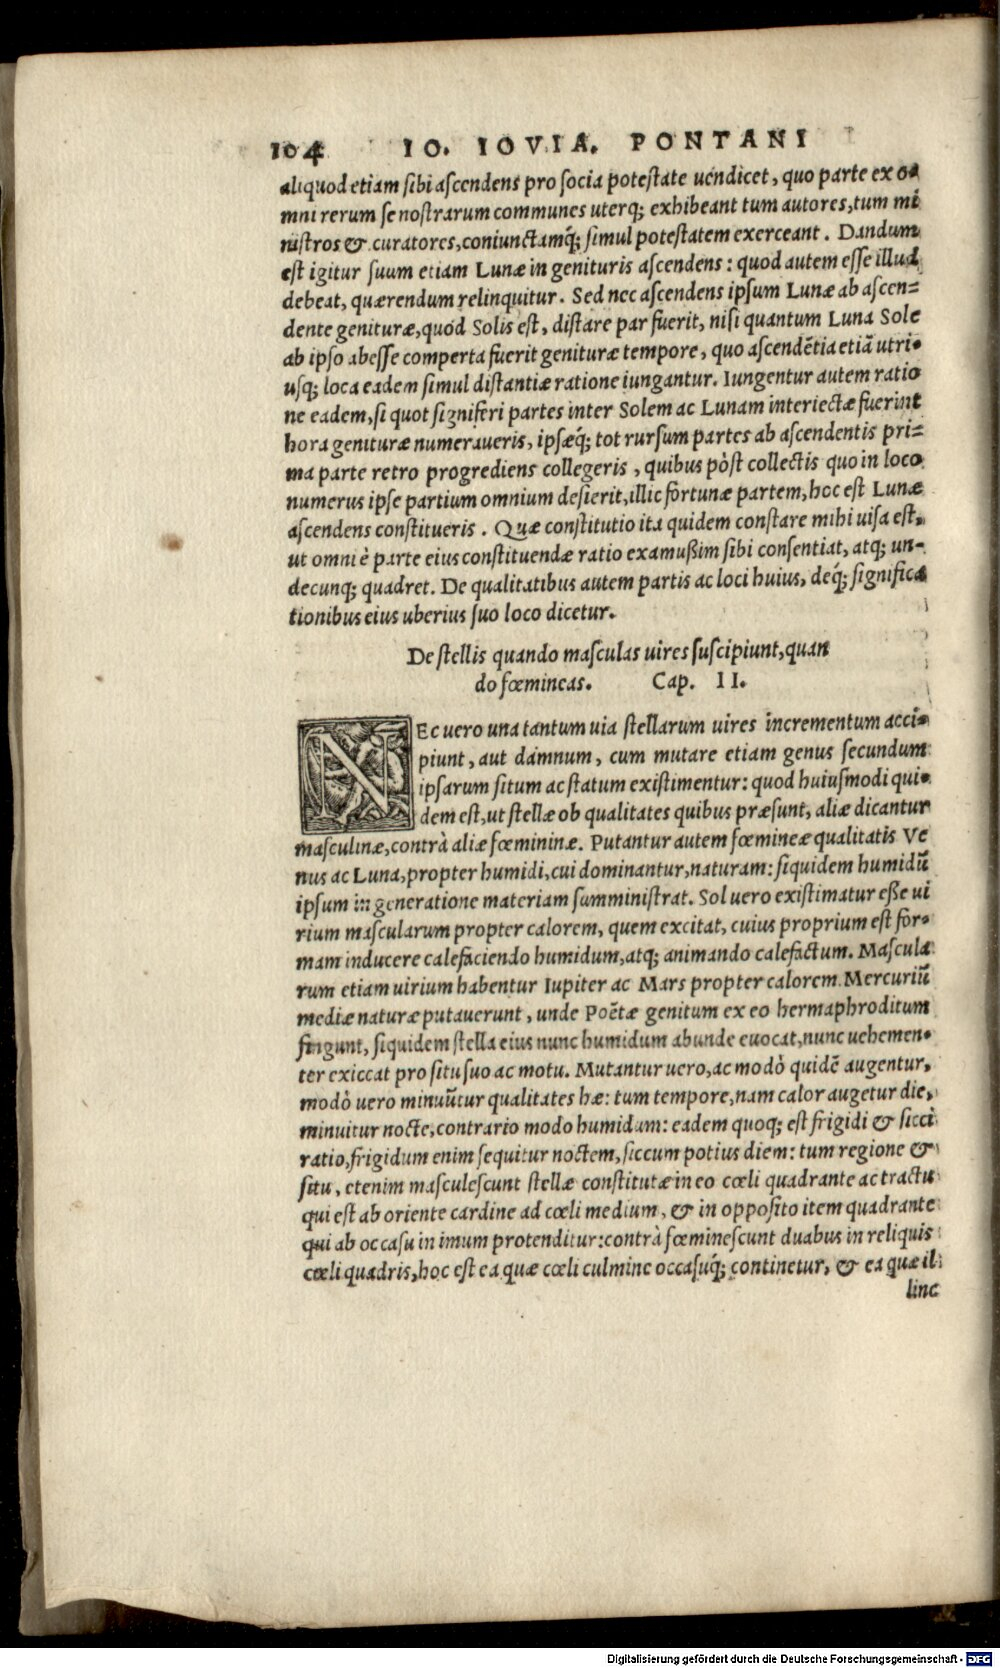 104 IO. IOVIA. PONTANI
aliquod etiam sibi ascendens pro socia potestate uendicet, quo parte ex o-
mni rerum se nostrarum communes uterq; exhibeant tum autores, tum mi
nistros & curatores, coniunctamq́; simul potestatem exerceant. Dandum
est igitur suum etiam Lunæ in genituris ascendens: quod autem esse illud
debeat, quærendum relinquitur. Sed nec ascendens ipsum Lunæ ab ascen-
dente genituræ, quod Solis est, distare par fuerit, nisi quantum Luna Sole
ab ipso abesse comperta fuerit genituræ tempore, quo ascendẽtia etiã utri-
usq; loca eadem simul distantiæ ratione iungantur. Iungentur autem ratio
ne eadem, si quot signiferi partes inter Solem ac Lunam interiectæ fuerint
hora genituræ numeraueris, ipsæq́; tot rursum partes ab ascendentis pri-
ma parte retro progrediens collegeris, quibus pòst collectis quo in loco
numerus ipse partium omnium desierit, illic fortunæ partem, hoc est Lunæ
ascendens constitueris. Quæ constitutio ita quidem constare mihi uisa est,
ut omni è parte eius constituendæ ratio examußim sibi consentiat, atq; un-
decunq; quadret. De qualitatibus autem partis ac loci huius, deq́; significa
tionibus eius uberius suo loco dicetur.
De stellis quando masculas uires suscipiunt, quan
do fœmineas. Cap. II.
NEc uero una tantum uia stellarum uires incrementum acci-
piunt, aut damnum, cum mutare etiam genus secundum
ipsarum situm ac statum existimentur: quod huiusmodi qui-
dem est, ut stellæ ob qualitates quibus præsunt, aliæ dicantur
masculinæ, contrà aliæ fœmininæ. Putantur autem fœmineæ qualitatis Ve
nus ac Luna, propter humidi, cui dominantur, naturam: siquidem humidũ
ipsum in generatione materiam sumministrat. Sol uero existimatur eße ui
rium mascularum propter calorem, quem excitat, cuius proprium est for-
mam inducere calefaciendo humidum, atq; animando calefactum. Mascula
rum etiam uirium habentur Iupiter ac Mars propter calorem. Mercuriũ
mediæ naturæ putauerunt, unde Poëtæ genitum ex eo hermaphroditum
fingunt, siquidem stella eius nunc humidum abunde euocat, nunc uehemen-
ter exiccat pro situ suo ac motu. Mutantur uero, ac modò quidẽ augentur,
modò uero minuũtur qualitates hæ: tum tempore, nam calor augetur die,
minuitur nocte, contrario modo humidum: eadem quoq; est frigidi & sicci
ratio, frigidum enim sequitur noctem, siccum potius diem: tum regione &
situ, etenim masculescunt stellæ constitutæ in eo cœli quadrante ac tractu
qui est ab oriente cardine ad cœli medium, & in opposito item quadrante
qui ab occasu in imum protenditur: contrà fœminescunt duabus in reliquis
cœli quadris, hoc est ea quæ cœli culmine occasuq́; continetur, & ea quæ il
linc
Digitalisierung gefördert durch die Deutsche Forschungsgemeinschaft - DFG